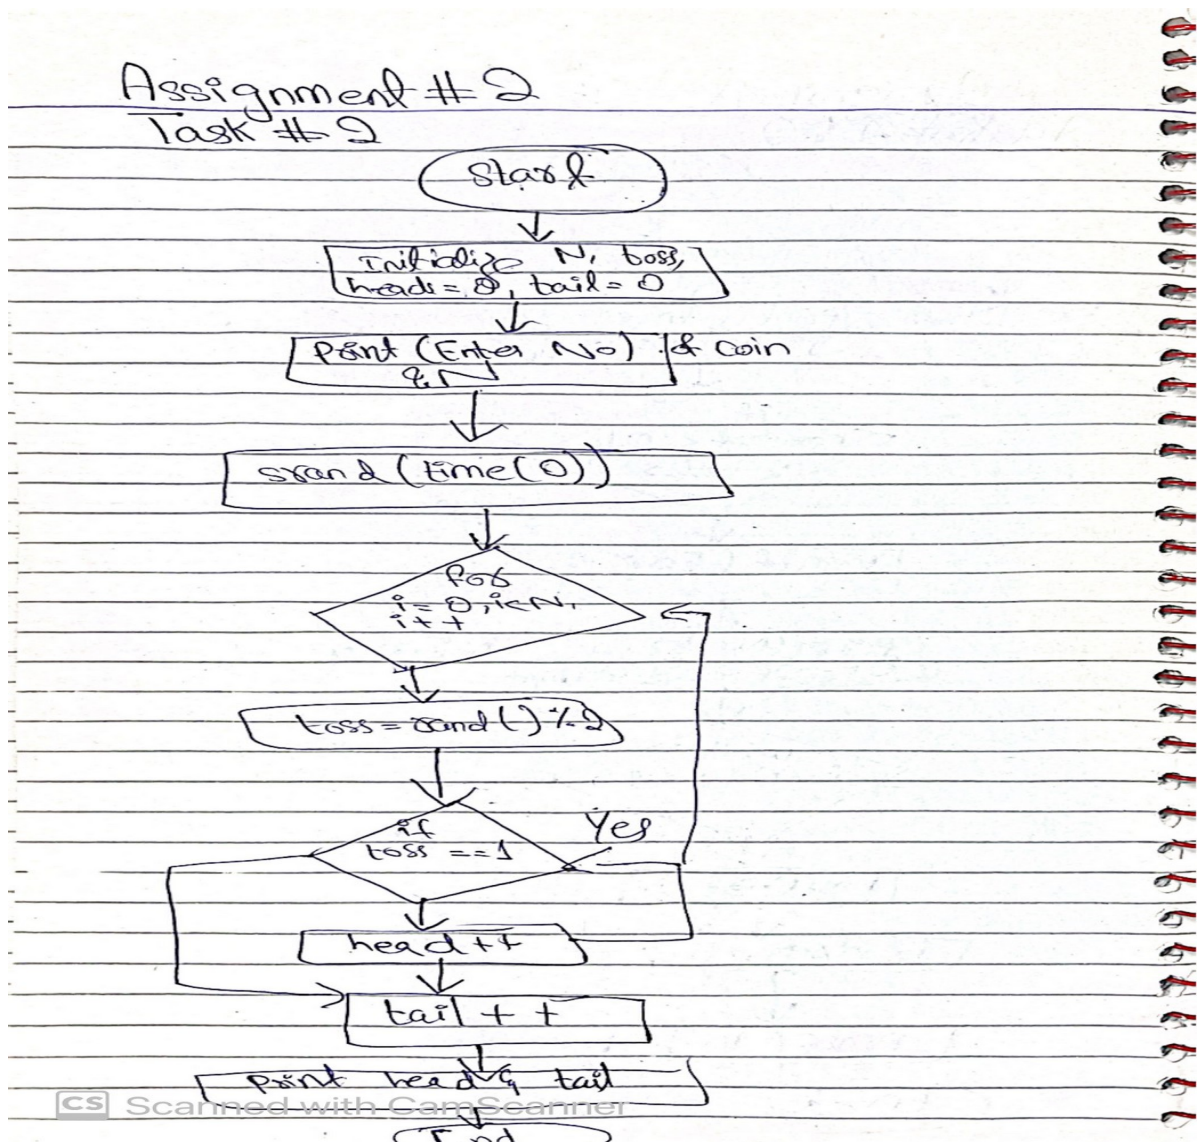 Assignment # 2
Task # 2
Start
Initialize N, toss,
heads = 0, tail = 0
Print (Enter No) of coin
& N
srand (time(0))
for
i = 0, i<N,
i++
toss = rand () % 2
if
toss == 1
Yes
head ++
tail ++
print head & tail
CS Scanned with CamScanner
End